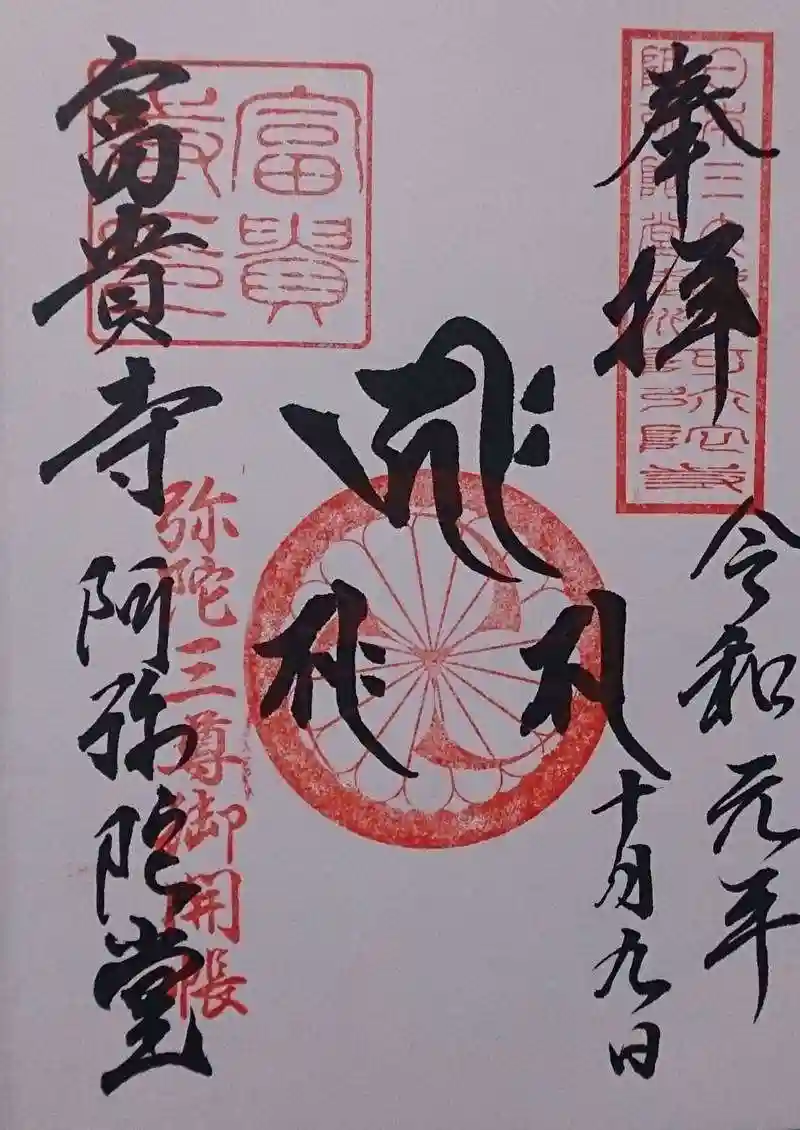 奉拝
令和元年
十月九日
富貴
弥陀三尊御開帳
富貴寺 阿弥陀堂